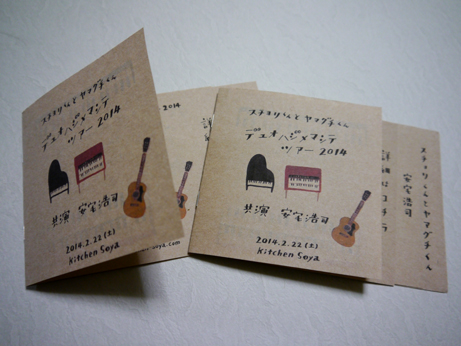 スチョリくんとヤマグチくん
デュオハジメマシテ
ツアー 2014
共演 安宅浩司
2014.2.22(土)
Kitchen Soya
2014
スチョリくんとヤマグチくん
デュオハジメマシテ
ツアー 2014
共演 安宅浩司
2014.2.22(土)
Kitchen Soya
スチョリくんとヤマグチくん
安宅浩司
詳細はコチラ